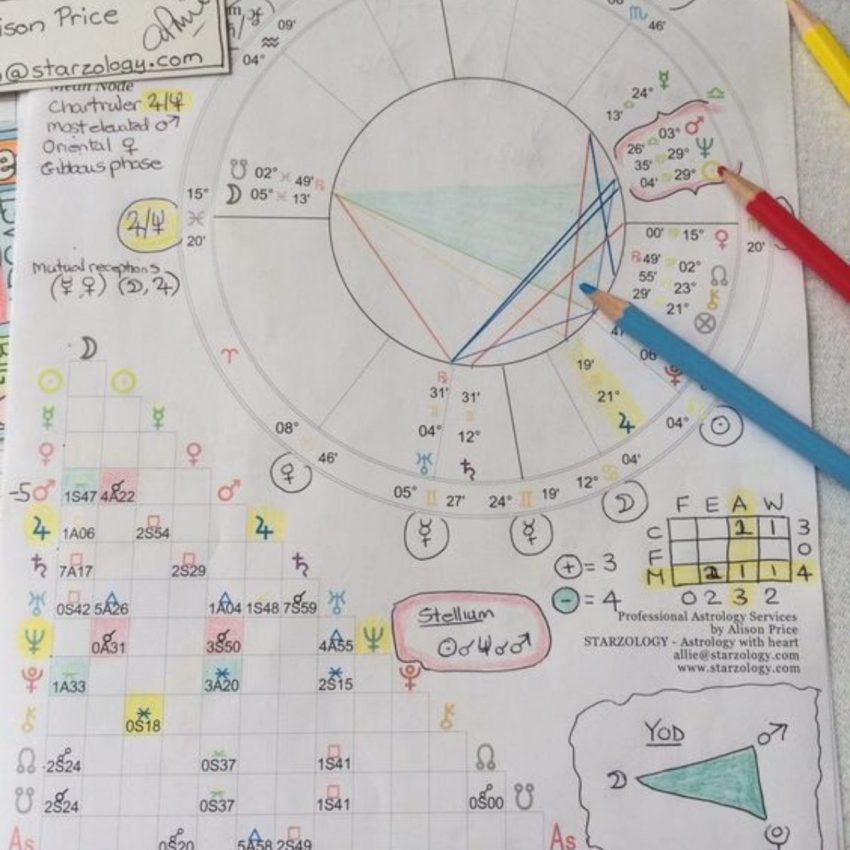 ison Price
@starzology.com
Mean Node
Chartruler ♃/♆
most elevated ♂
Oriental ♀
Gibbous phase
09'
04°
46'
24° ☿
13' ♎
03° ♂
26' ♎
29° ♆
35'
04' 29°
☋ 02° ♓ 49' ℞
☽ 05° ♓ 13'
15°
♓
20'
♃/♆
00' 15° ♀
20'
℞49' 02° ☊
55' 23°
29' 21° ⊗
mutual receptions
(☿ ♀) (☽, ♃)
♈
08°
46'
♀
℞
31' 31'
04° 12°
♅ ♄
19'
21°
♃
06
04°
☉
04'
12°
☽
05° ♊ 27' 24° ♊ 19'
☿ ☿
☽
☉ ☉
☿ ☿
♀ ♀
-5♂ 1S47 4A22 ♂
♃ 1A06 2S54 ♃
♄ 7A17 2S29 ♄
♅ 0S42 5A26 1A04 1S48 7S59 ♅
♆ 0A31 3S50 4A55 ♆
1A33 3A20 2S15
0S18
☊ 2S24 0S37 1S41 ☊
☋ 2S24 0S37 1S41 0S00 ☋
As 0S20 5A58 2S49 As
F E A W
C 1 1 3
F 0
M 2 1 1 4
0 2 3 2
+ = 3
- = 4
Stellium
☉☌♆☌♂
Professional Astrology Services
by Alison Price
STARZOLOGY - Astrology with heart
allie@starzology.com
www.starzology.com
YOD
☽ ♂